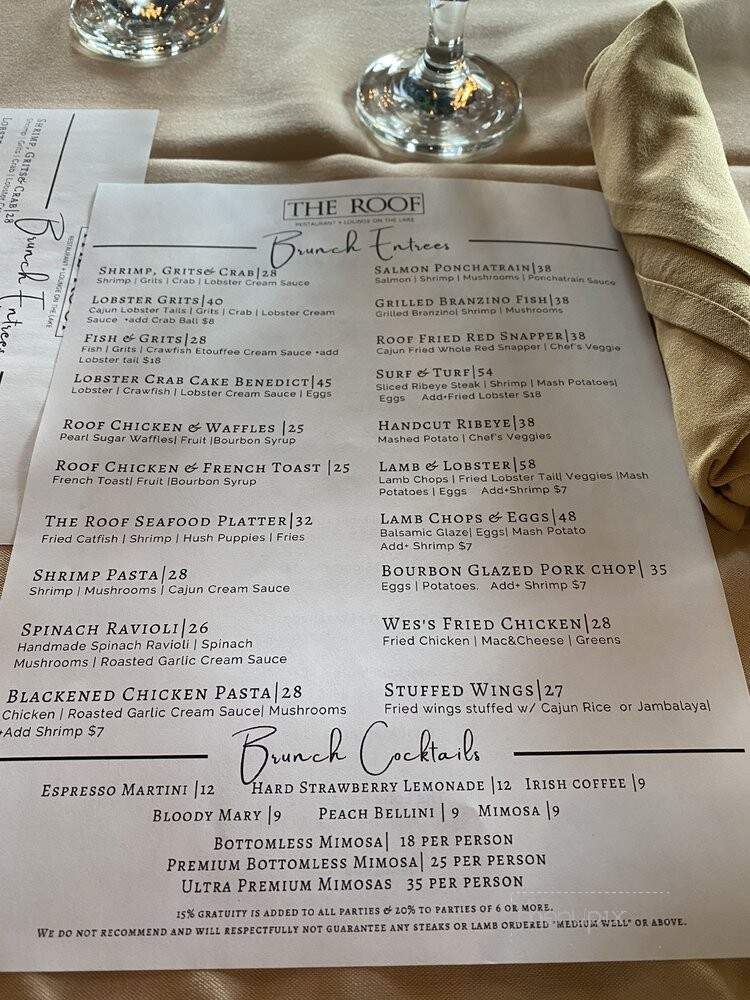 THE ROOF
RESTAURANT + LOUNGE ON THE LAKE
Brunch Entrees
SHRIMP, GRITS& CRAB|28
Shrimp | Grits | Crab | Lobster Cream Sauce
LOBSTER GRITS|40
Cajun Lobster Tails | Grits | Crab | Lobster Cream
Sauce •add Crab Ball $8
FISH & GRITS|28
Fish | Grits | Crawfish Etouffee Cream Sauce •add
Lobster tail $18
LOBSTER CRAB CAKE BENEDICT|45
Lobster | Crawfish | Lobster Cream Sauce | Eggs
ROOF CHICKEN & WAFFLES |25
Pearl Sugar Waffles| Fruit |Bourbon Syrup
ROOF CHICKEN & FRENCH TOAST |25
French Toast| Fruit |Bourbon Syrup
THE ROOF SEAFOOD PLATTER|32
Fried Catfish | Shrimp | Hush Puppies | Fries
SHRIMP PASTA|28
Shrimp | Mushrooms | Cajun Cream Sauce
SPINACH RAVIOLI|26
Handmade Spinach Ravioli | Spinach
Mushrooms | Roasted Garlic Cream Sauce
BLACKENED CHICKEN PASTA|28
Chicken | Roasted Garlic Cream Sauce| Mushrooms
+Add Shrimp $7
SALMON PONCHATRAIN|38
Salmon | Shrimp | Mushrooms | Ponchatrain Sauce
GRILLED BRANZINO FISH|38
Grilled Branzino| Shrimp | Mushrooms
ROOF FRIED RED SNAPPER|38
Cajun Fried Whole Red Snapper | Chef's Veggie
SURF & TURF|54
Sliced Ribeye Steak | Shrimp | Mash Potatoes|
Eggs Add+Fried Lobster $18
HANDCUT RIBEYE|38
Mashed Potato | Chef's Veggies
LAMB & LOBSTER|58
Lamb Chops | Fried Lobster Tail| Veggies |Mash
Potatoes | Eggs Add+Shrimp $7
LAMB CHOPS & EGGS|48
Balsamic Glaze| Eggs| Mash Potato
Add+ Shrimp $7
BOURBON GLAZED PORK CHOP| 35
Eggs | Potatoes. Add+ Shrimp $7
WES'S FRIED CHICKEN|28
Fried Chicken | Mac&Cheese | Greens
STUFFED WINGS|27
Fried wings stuffed w/ Cajun Rice or Jambalaya|
Brunch Cocktails
ESPRESSO MARTINI |12 HARD STRAWBERRY LEMONADE |12 IRISH COFFEE |9
BLOODY MARY |9 PEACH BELLINI | 9 MIMOSA |9
BOTTOMLESS MIMOSA| 18 PER PERSON
PREMIUM BOTTOMLESS MIMOSA| 25 PER PERSON
ULTRA PREMIUM MIMOSAS 35 PER PERSON
15% GRATUITY IS ADDED TO ALL PARTIES & 20% TO PARTIES OF 6 OR MORE.
WE DO NOT RECOMMEND AND WILL RESPECTFULLY NOT GUARANTEE ANY STEAKS OR LAMB ORDERED "MEDIUM WELL" OR ABOVE.
RESTAURANT + LOUNGE ON THE LAKE
Brunch Entrees
SHRIMP, GRITS& CRAB|28
Shrimp | Grits | Crab | Lobster
LOBSTE